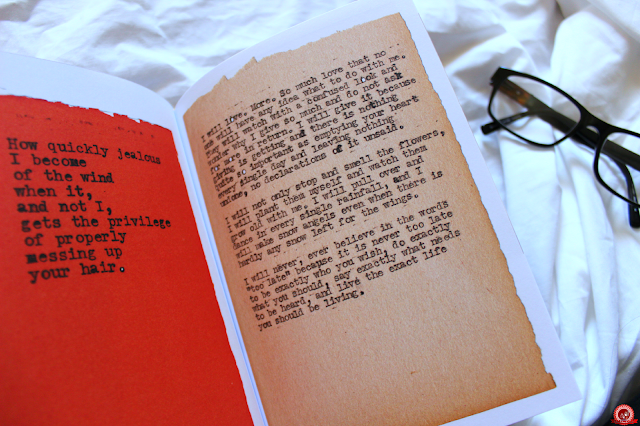 How quickly jealous
I become
of the wind
when it,
and not I,
gets the privilege
of properly
messing up
your hair.
I will love. More. So much love that no
one will have any idea what to do with me.
They will watch with a confused look and
wonder why I give so much and do not ask
for more in return. I will give it because
giving is getting, and there is nothing
quite so important as emptying your heart
every single day and leaving nothing
undone, no declarations of it unsaid.
I will not only stop and smell the flowers,
I will plant them myself and watch them
grow old with me. I will pull over and
dance in every single rainfall, and I
will make snow angels even when there is
hardly any snow left for the wings.
I will never, ever believe in the words
"too late" because it is never too late
to be exactly who you wish, do exactly
what you should, say exactly what needs
to be heard, and live the exact life
you should be living.